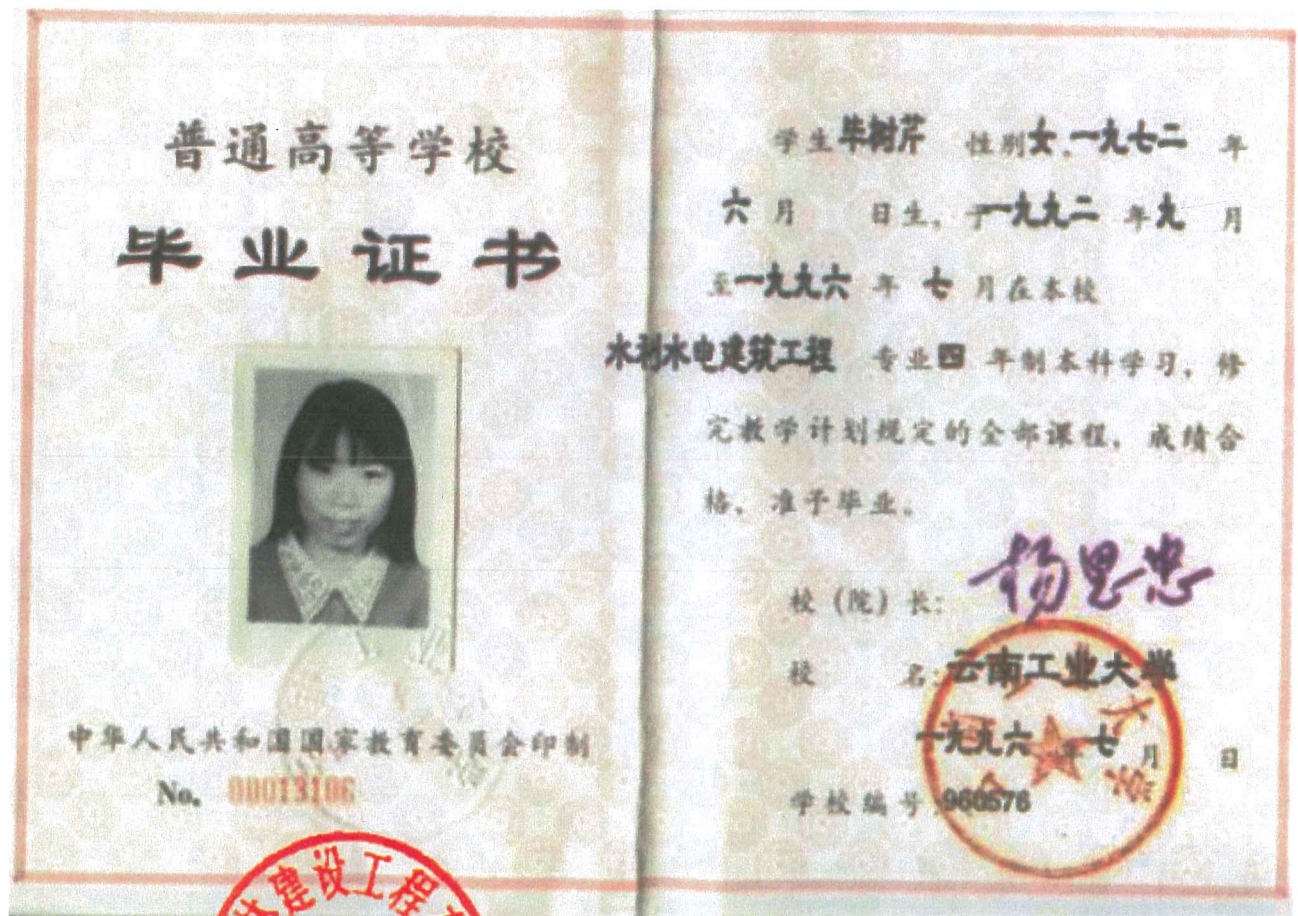 普通高等学校
毕业证书
中华人民共和国国家教育委员会印制
No. 00013106
建设工程
学生毕树芹 性别女,一九七二 年
六 月 日生，于一九九二 年九 月
至一九九六 年 七 月在本校
水利水电建筑工程 专业四 年制本科学习，修
完教学计划规定的全部课程，成绩合
格，准予毕业。
校（院）长：杨思忠
校 名：云南工业大学
一九九六 年 七 月 日
学校编号 960576